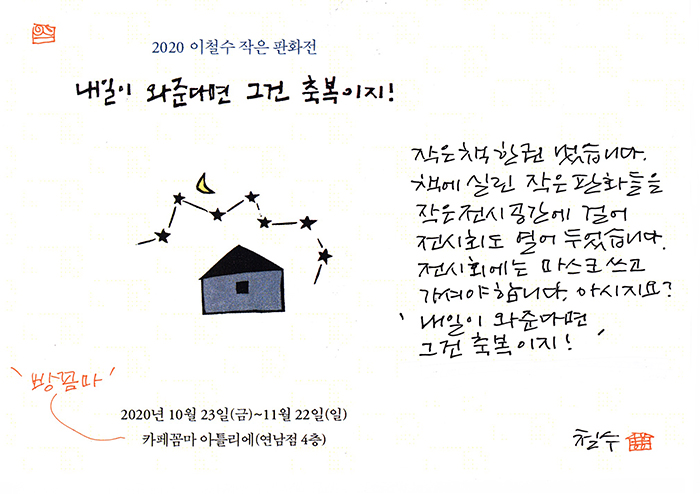 2020 이철수 작은 판화전
내일이 와준다면 그건 축복이지!
작은 책 한권 냈습니다.
책에 실린 작은 판화들을
작은 전시공간에 걸어
전시회도 열어 두었습니다.
전시회에는 마스크 쓰고
가셔야 합니다. 아시지요?
'내일이 와준다면
그건 축복이지!'
'빵꼼마'
2020년 10월 23일(금)~11월 22일(일)
카페꼼마 아틀리에(연남점 4층)
철수